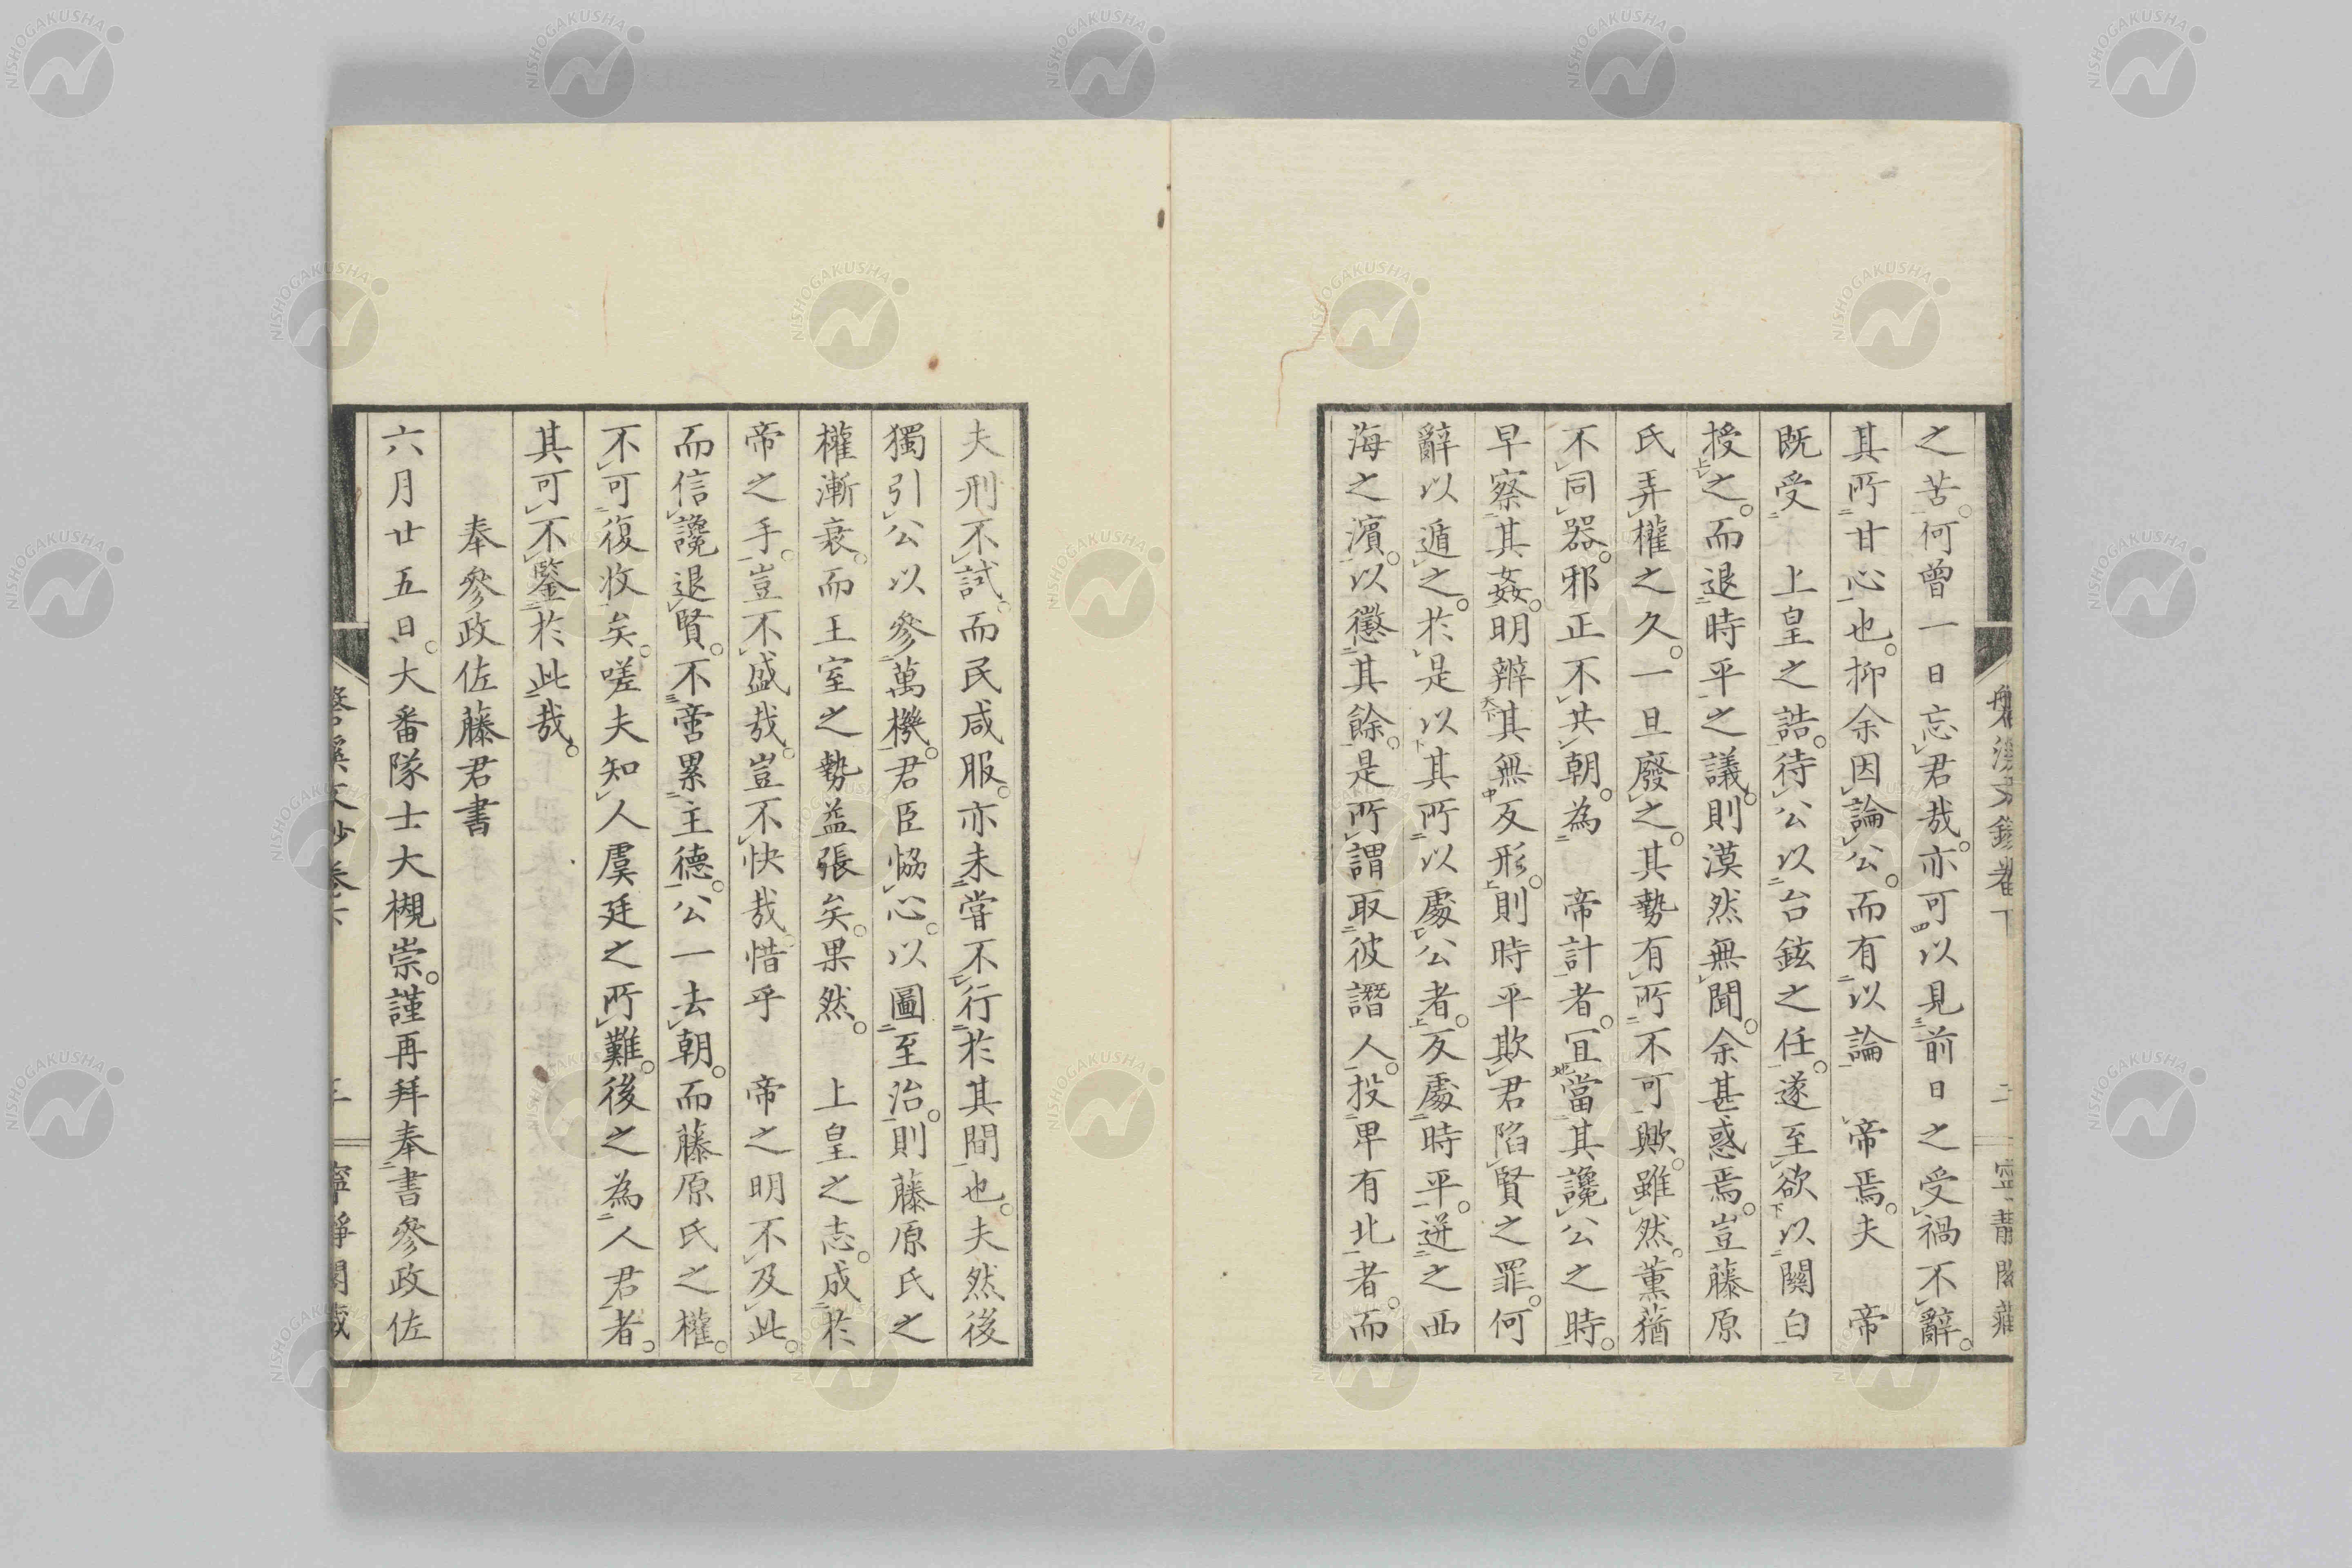 之苦。何曾一日忘君哉。亦可以見前日之受禍不辭。
其所甘心也。抑余因論公。而有以論　帝焉。夫　帝
既受　上皇之誥。待公以台鉉之任。遂至欲以關白
授之。而退時平之議。則漠然無聞。余甚惑焉。豈藤原
氏弄權之久。一旦廢之。其勢有所不可歟。雖然。薰蕕
不同器。邪正不共朝。為　帝計者。宜當其讒公之時。
早察其姦。明辨其無反形。則時平欺君陷賢之罪。何
辭以遁之。於是以其所以處公者。反處時平。迸之西
海之濱。以懲其餘。是所謂取彼譖人。投畀有北者。而
夫刑不試。而民咸服。亦未嘗不行於其間也。夫然後
獨引公以參萬機。君臣恊心。以圖至治。則藤原氏之
權漸衰。而王室之勢益張矣。果然。　上皇之志。成於
帝之手。豈不盛哉。豈不快哉。惜乎　帝之明不及此。
而信讒退賢。不啻累主德。公一去朝。而藤原氏之權。
不可復收矣。嗟夫知人虞廷之所難。後之為人君者。
其可不鑒於此哉。
奉參政佐藤君書
六月廿五日。大番隊士大槻崇。謹再拜奉書參政佐